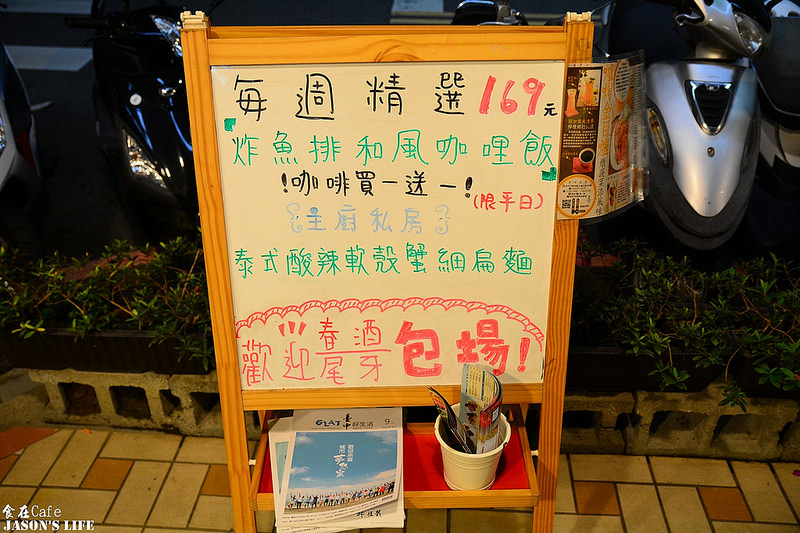 每週精選169元
炸魚排和風咖哩飯
!咖啡買一送一!(限平日)
{主廚私房}
泰式酸辣軟殼蟹細扁麵
歡迎春酒尾牙包場!
GLAT 好生活 9
食在Cafe
JASON'S LIFE